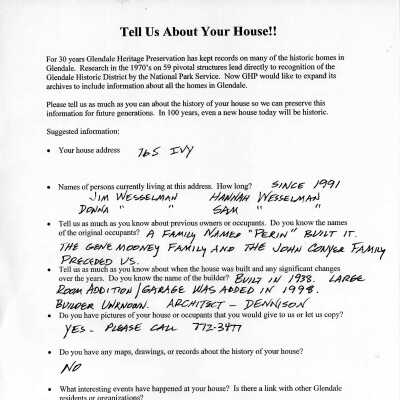 Tell Us About Your House!!
For 30 years Glendale Heritage Preservation has kept records on many of the historic homes in
Glendale. Research in the 1970's on 59 pivotal structures lead directly to recognition of the
Glendale Historic District by the National Park Service. Now GHP would like to expand its
archives to include information about all the homes in Glendale.
Please tell us as much as you can about the history of your house so we can preserve this
information for future generations. In 100 years, even a new house today will be historic.
Suggested information:
• Your house address 765 IVY
• Names of persons currently living at this address. How long? SINCE 1991
JIM WESSELMAN HANNAH WESSELMAN
DONNA " SAM "
• Tell us as much as you know about previous owners or occupants. Do you know the names
of the original occupants? A FAMILY NAMED "PERIN" BUILT IT.
THE GENE MOONEY FAMILY AND THE JOHN CONYER FAMILY
PRECEDED US.
• Tell us as much as you know about when the house was built and any significant changes
over the years. Do you know the name of the builder? BUILT IN 1938. LARGE
ROOM ADDITION/GARAGE WAS ADDED IN 1998.
BUILDER UNKNOWN. ARCHITECT - DENNISON
• Do you have pictures of your house or occupants that you would give to us or let us copy?
YES - PLEASE CALL 772-3477
• Do you have any maps, drawings, or records about the history of your house?
NO
• What interesting events have happened at your house? Is there a link with other Glendale
residents or organizations?